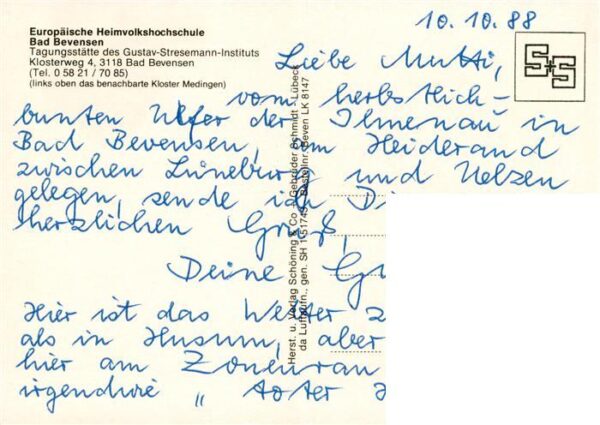 Europäische Heimvolkshochschule
Bad Bevensen
Tagungsstätte des Gustav-Stresemann-Instituts
Klosterweg 4, 3118 Bad Bevensen
(Tel. 0 58 21 / 70 85)
(links oben das benachbarte Kloster Medingen)
10.10.88
Liebe Mutti,
vom herbstlich-
bunten Ufer der Ilmenau in
Bad Bevensen, am Heiderand
zwischen Lüneburg und Uelzen
gelegen, sende ich
herzlichen Gruß,
Deine
Hier ist das Wetter
als in Husum, aber
hier am
irgendwie „toter
Herst. u. Verlag Schöning & Co + Gebrüder Schmidt - Lübeck
da Luftaufn., gen. SH 1-51743 Bestellnr. Beven LK 8147
S+S